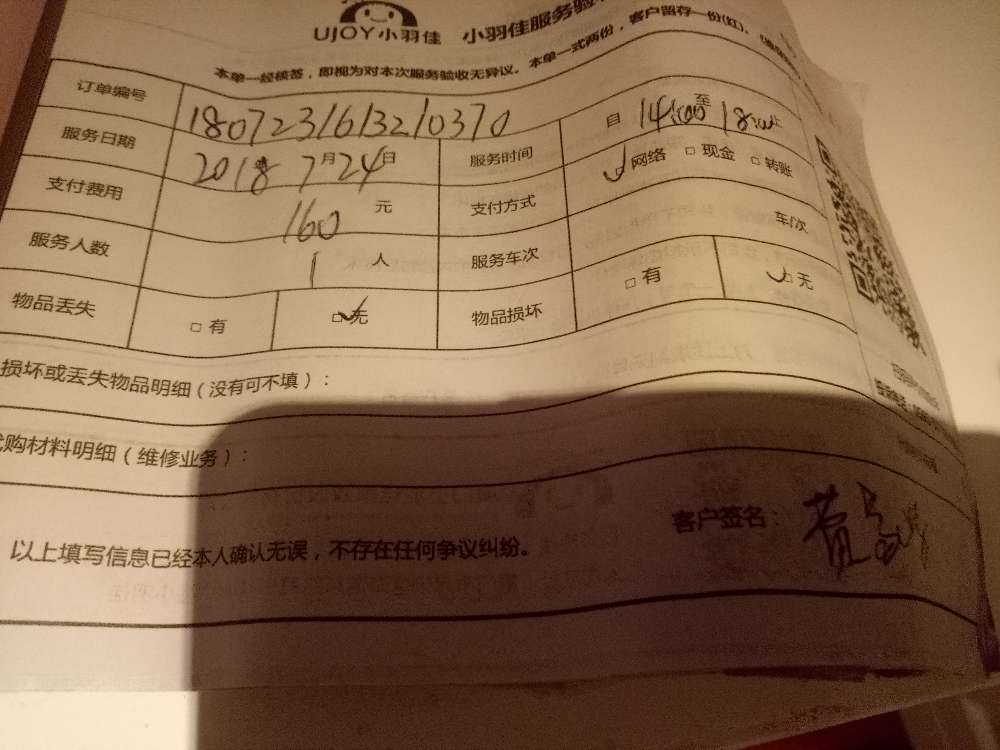 UJOY小羽佳 小羽佳服务验
本单一经核签，即视为对本次服务验收无异议。本单一式两份，客户留存一份(红)、
订单编号 1807231613210370
服务日期 2018年7月24日 服务时间 自 14:00 至 18:00 止
支付费用 160 元 支付方式 网络 □ 现金 □ 转账
服务人数 1 人 服务车次 车/次
物品丢失 □ 有 □ 无 物品损坏 □ 有 □ 无
损坏或丢失物品明细（没有可不填）：
购材料明细（维修业务）：
客户签名：
以上填写信息已经本人确认无误，不存在任何争议纠纷。